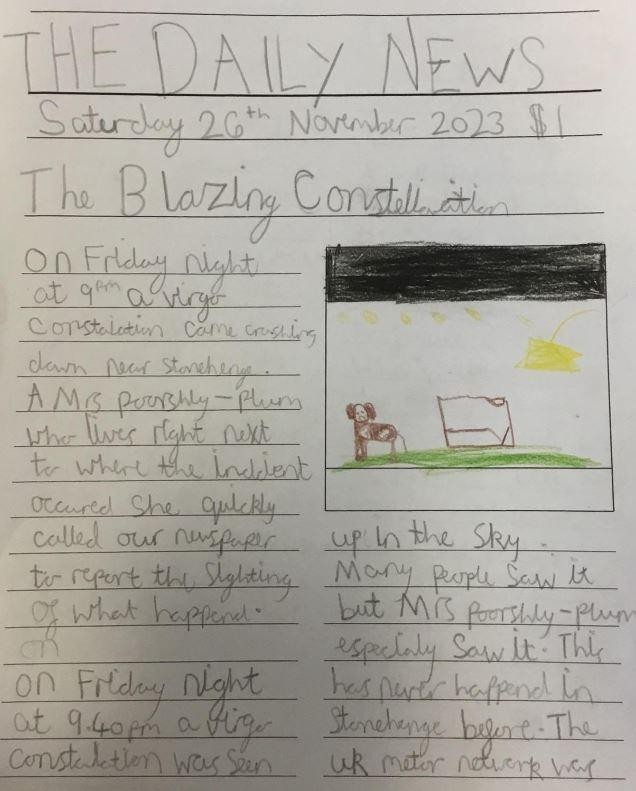 THE DAILY NEWS
Saturday 26th November 2023 $1
The Blazing Constellation
On Friday night
at 9pm a virgo
Constalation came crashing
down near stonehenge.
A Mrs poorshly-plum
who lives right next
to where the incident
occured she quickly
called our newspaper
to report the sighting
of what happend.
on
on Friday night
at 9.40pm a virgo
constalation was seen
up in the sky.
Many people saw it
but Mrs poorshly-plum
especialy saw it. This
has never happend in
stonehenge before. The
uk metor network was